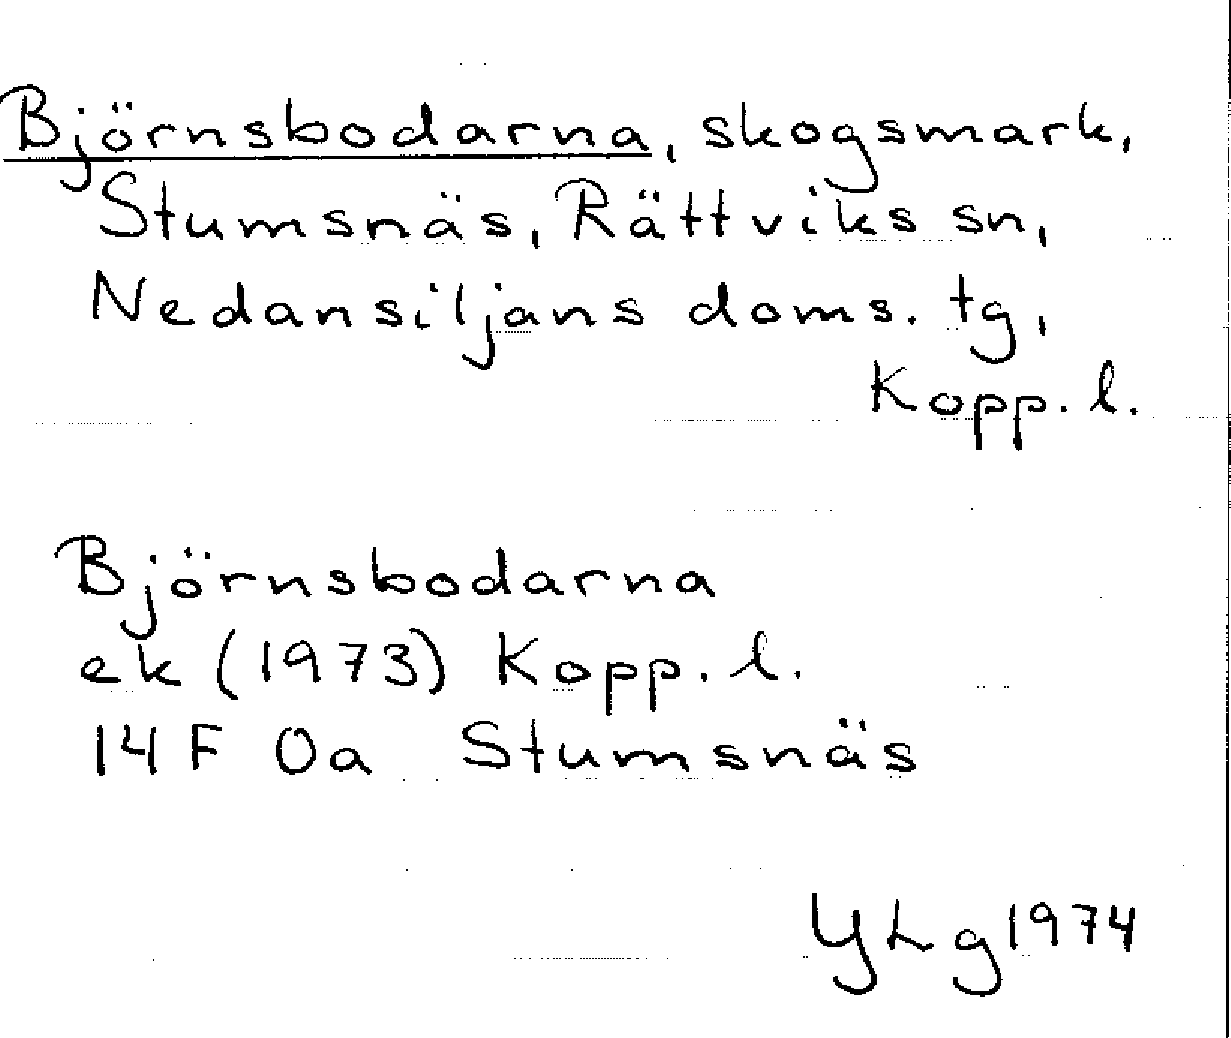 Björnsbodarna, skogsmark,
Stumsnäs, Rättviks sn,
Nedansiljans doms. tg,
Kopp. l.
Björnsbodarna
ek (1973) Kopp. l.
14 F 0a Stumsnäs
YLg 1974